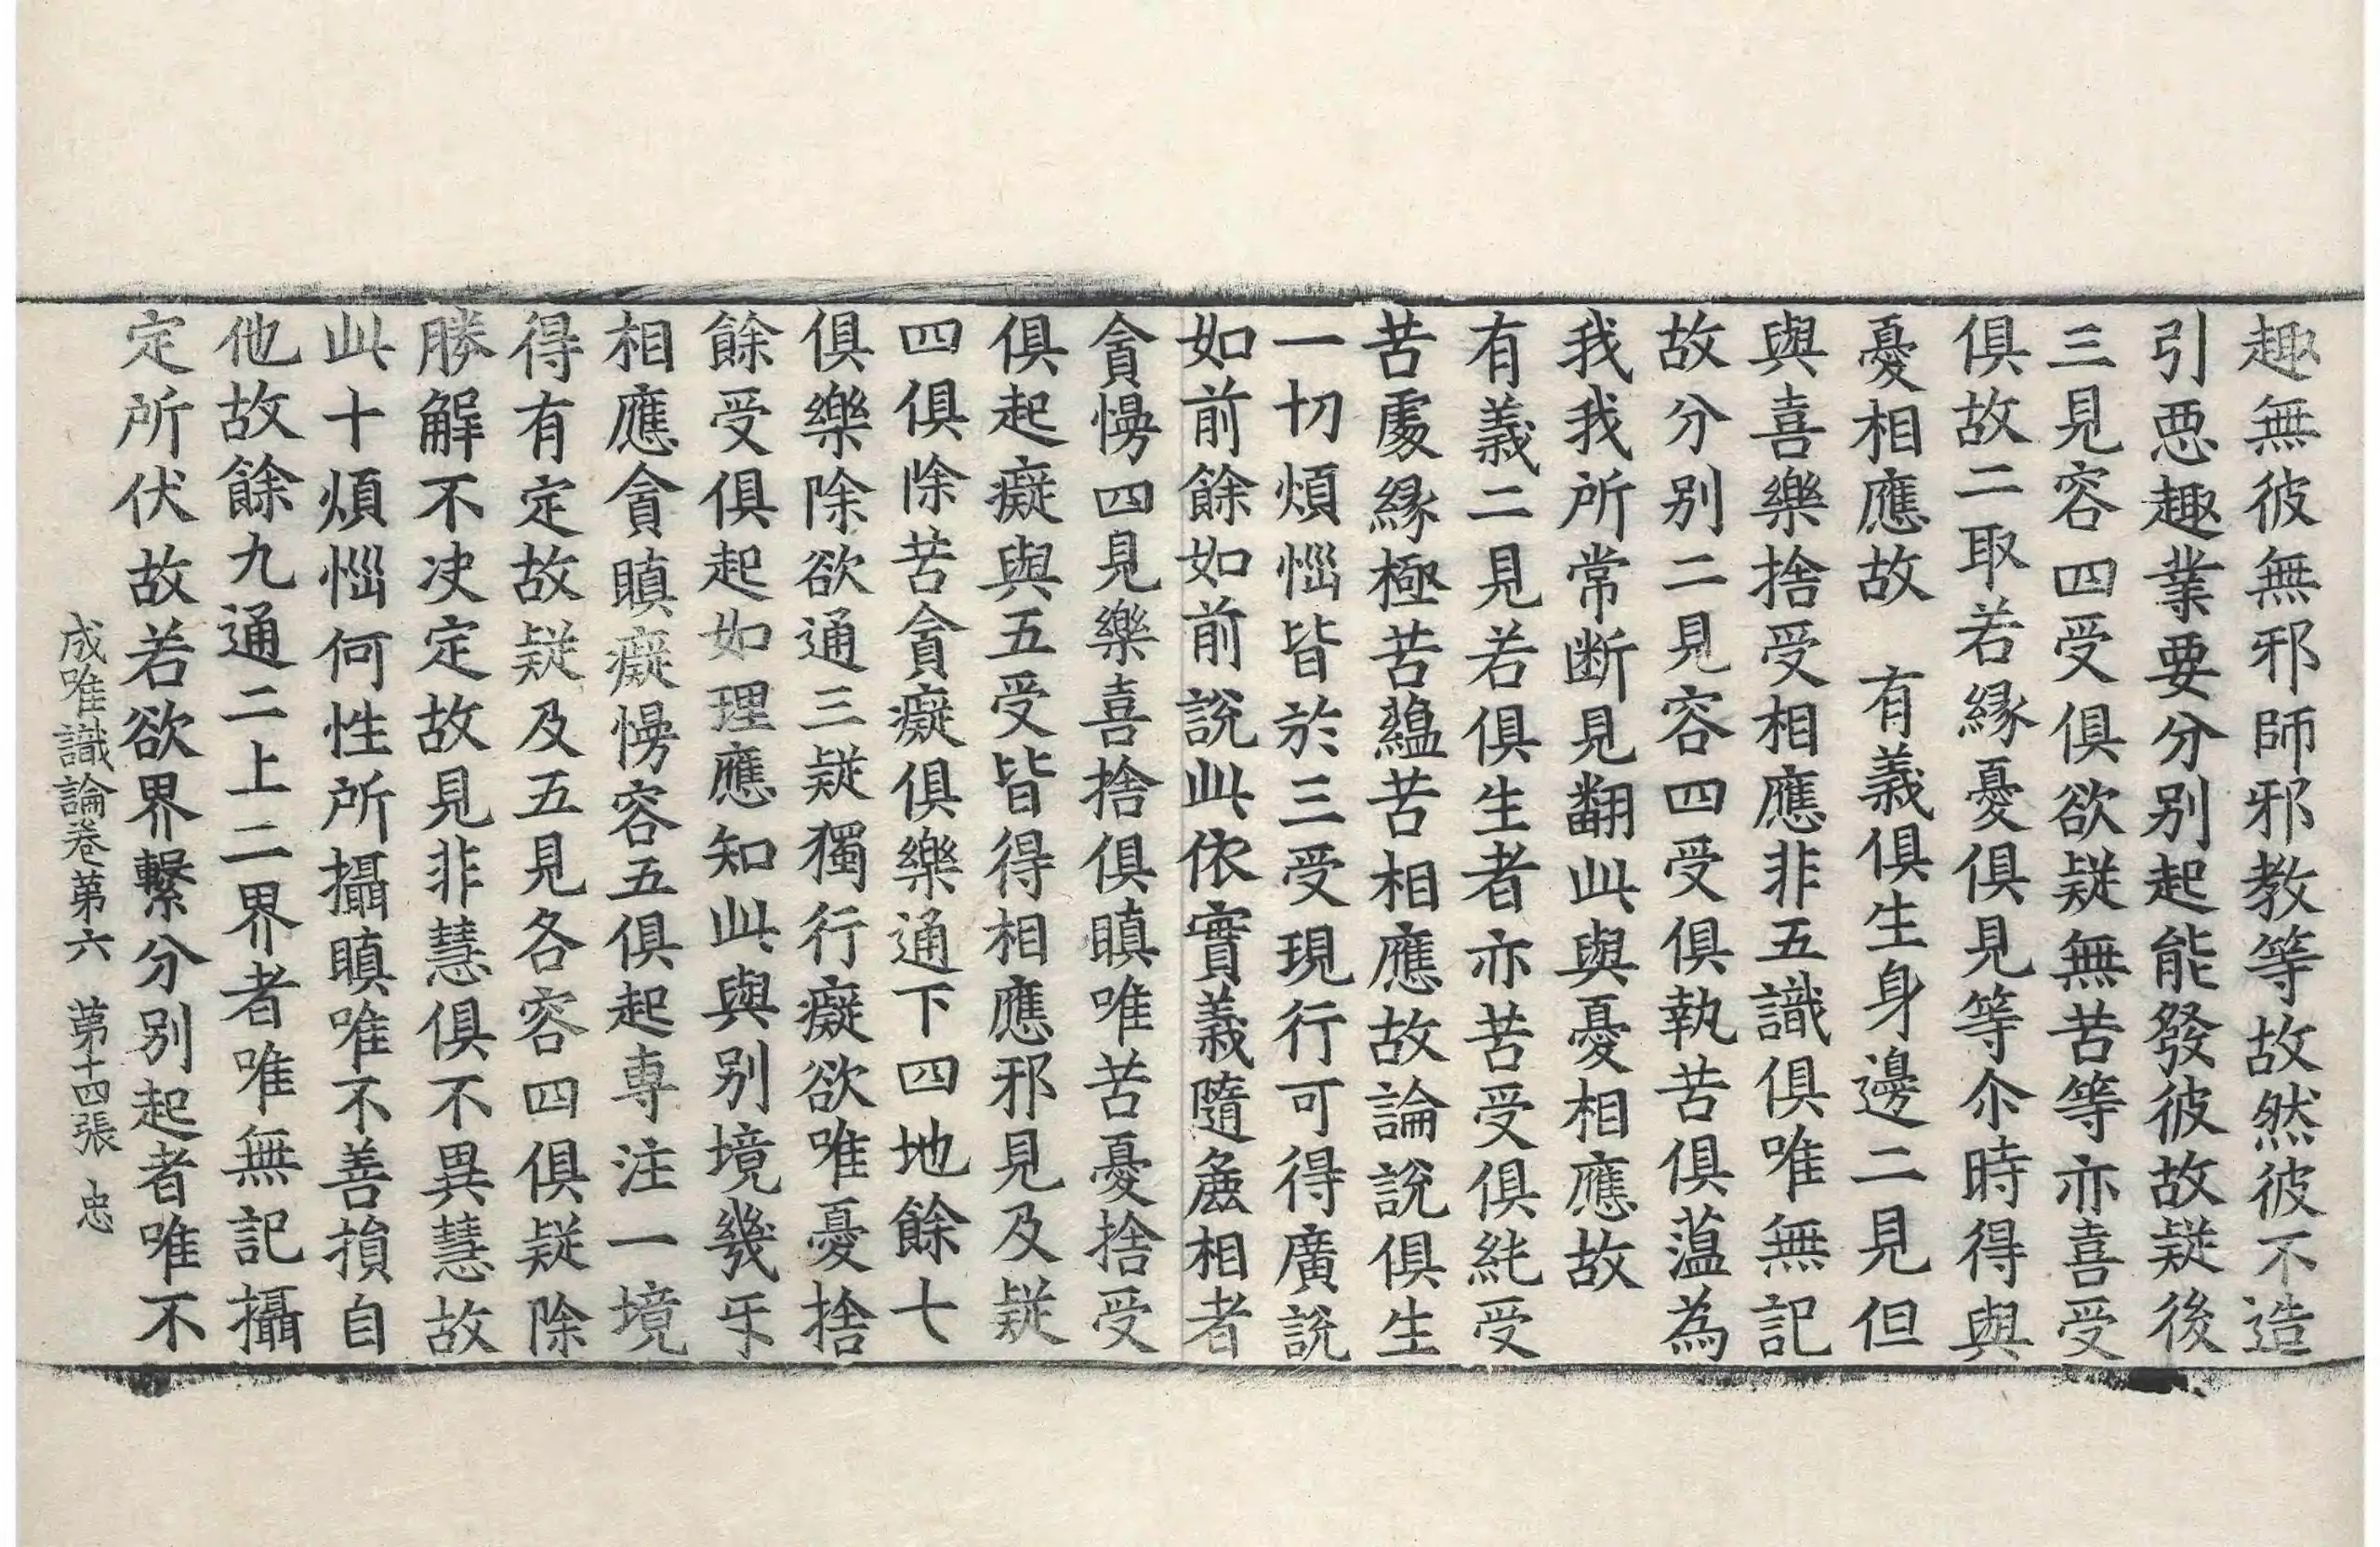 趣無彼無邪師邪教等故然彼不造
引惡趣業要分別起能發彼故疑後
三見容四受俱欲疑無苦等亦喜受
俱故二取若緣憂俱見等尒時得與
憂相應故　有義俱生身邊二見但
與喜樂捨受相應非五識俱唯無記
故分別二見容四受俱執苦俱蕰為
我我所常断見翻此與憂相應故
有義二見若俱生者亦苦受俱純受
苦處緣極苦蘊苦相應故論說俱生
一切煩惱皆於三受現行可得廣說
如前餘如前說此依實義隨麁相者
貪慢四見樂喜捨俱瞋唯苦憂捨受
俱起癡與五受皆得相應邪見及疑
四俱除苦貪癡俱樂通下四地餘七
俱樂除欲通三疑獨行癡欲唯憂捨
餘受俱起如理應知此與别境幾㸦
相應貪瞋癡慢容五俱起専注一境
得有定故疑及五見各容四俱疑除
勝解不决定故見非慧俱不異慧故
此十煩惱何性所攝瞋唯不善損自
他故餘九通二上二界者唯無記攝
定所伏故若欲界繫分别起者唯不
成唯識論卷第六　第十四張　忠